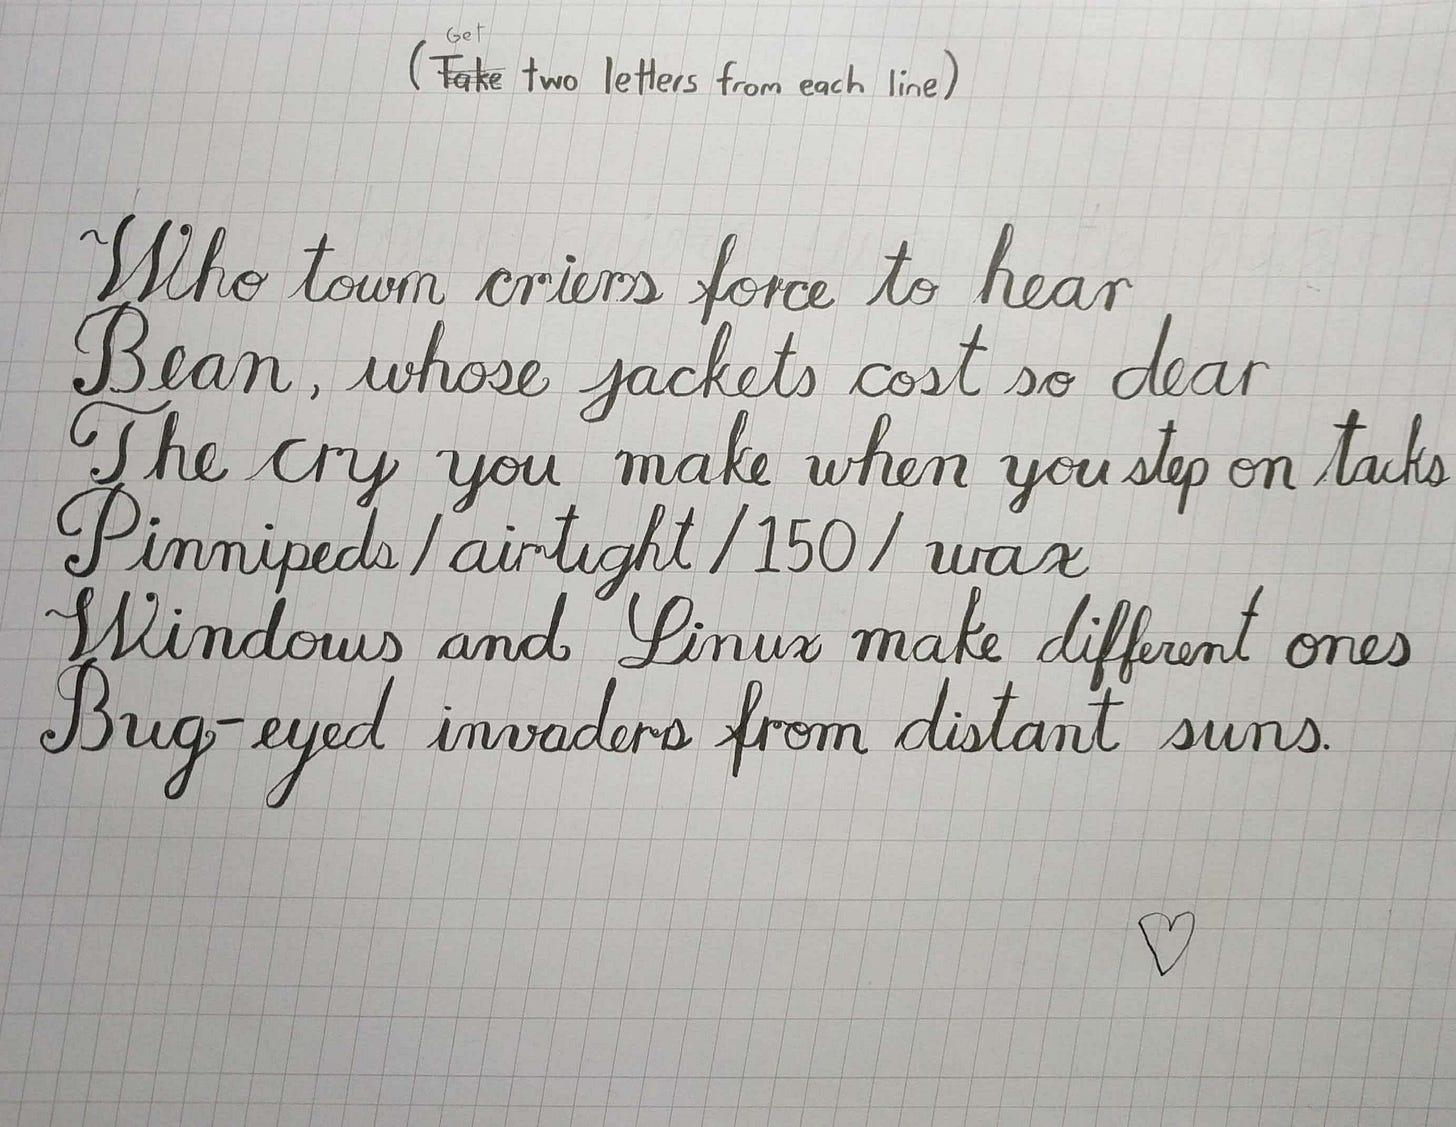 Get
(Take two letters from each line)
Who town criers force to hear
Bean, whose jackets cost so dear
The cry you make when you step on tacks
Pinnipeds/airtight/150/wax
Windows and Linux make different ones
Bug-eyed invaders from distant suns.